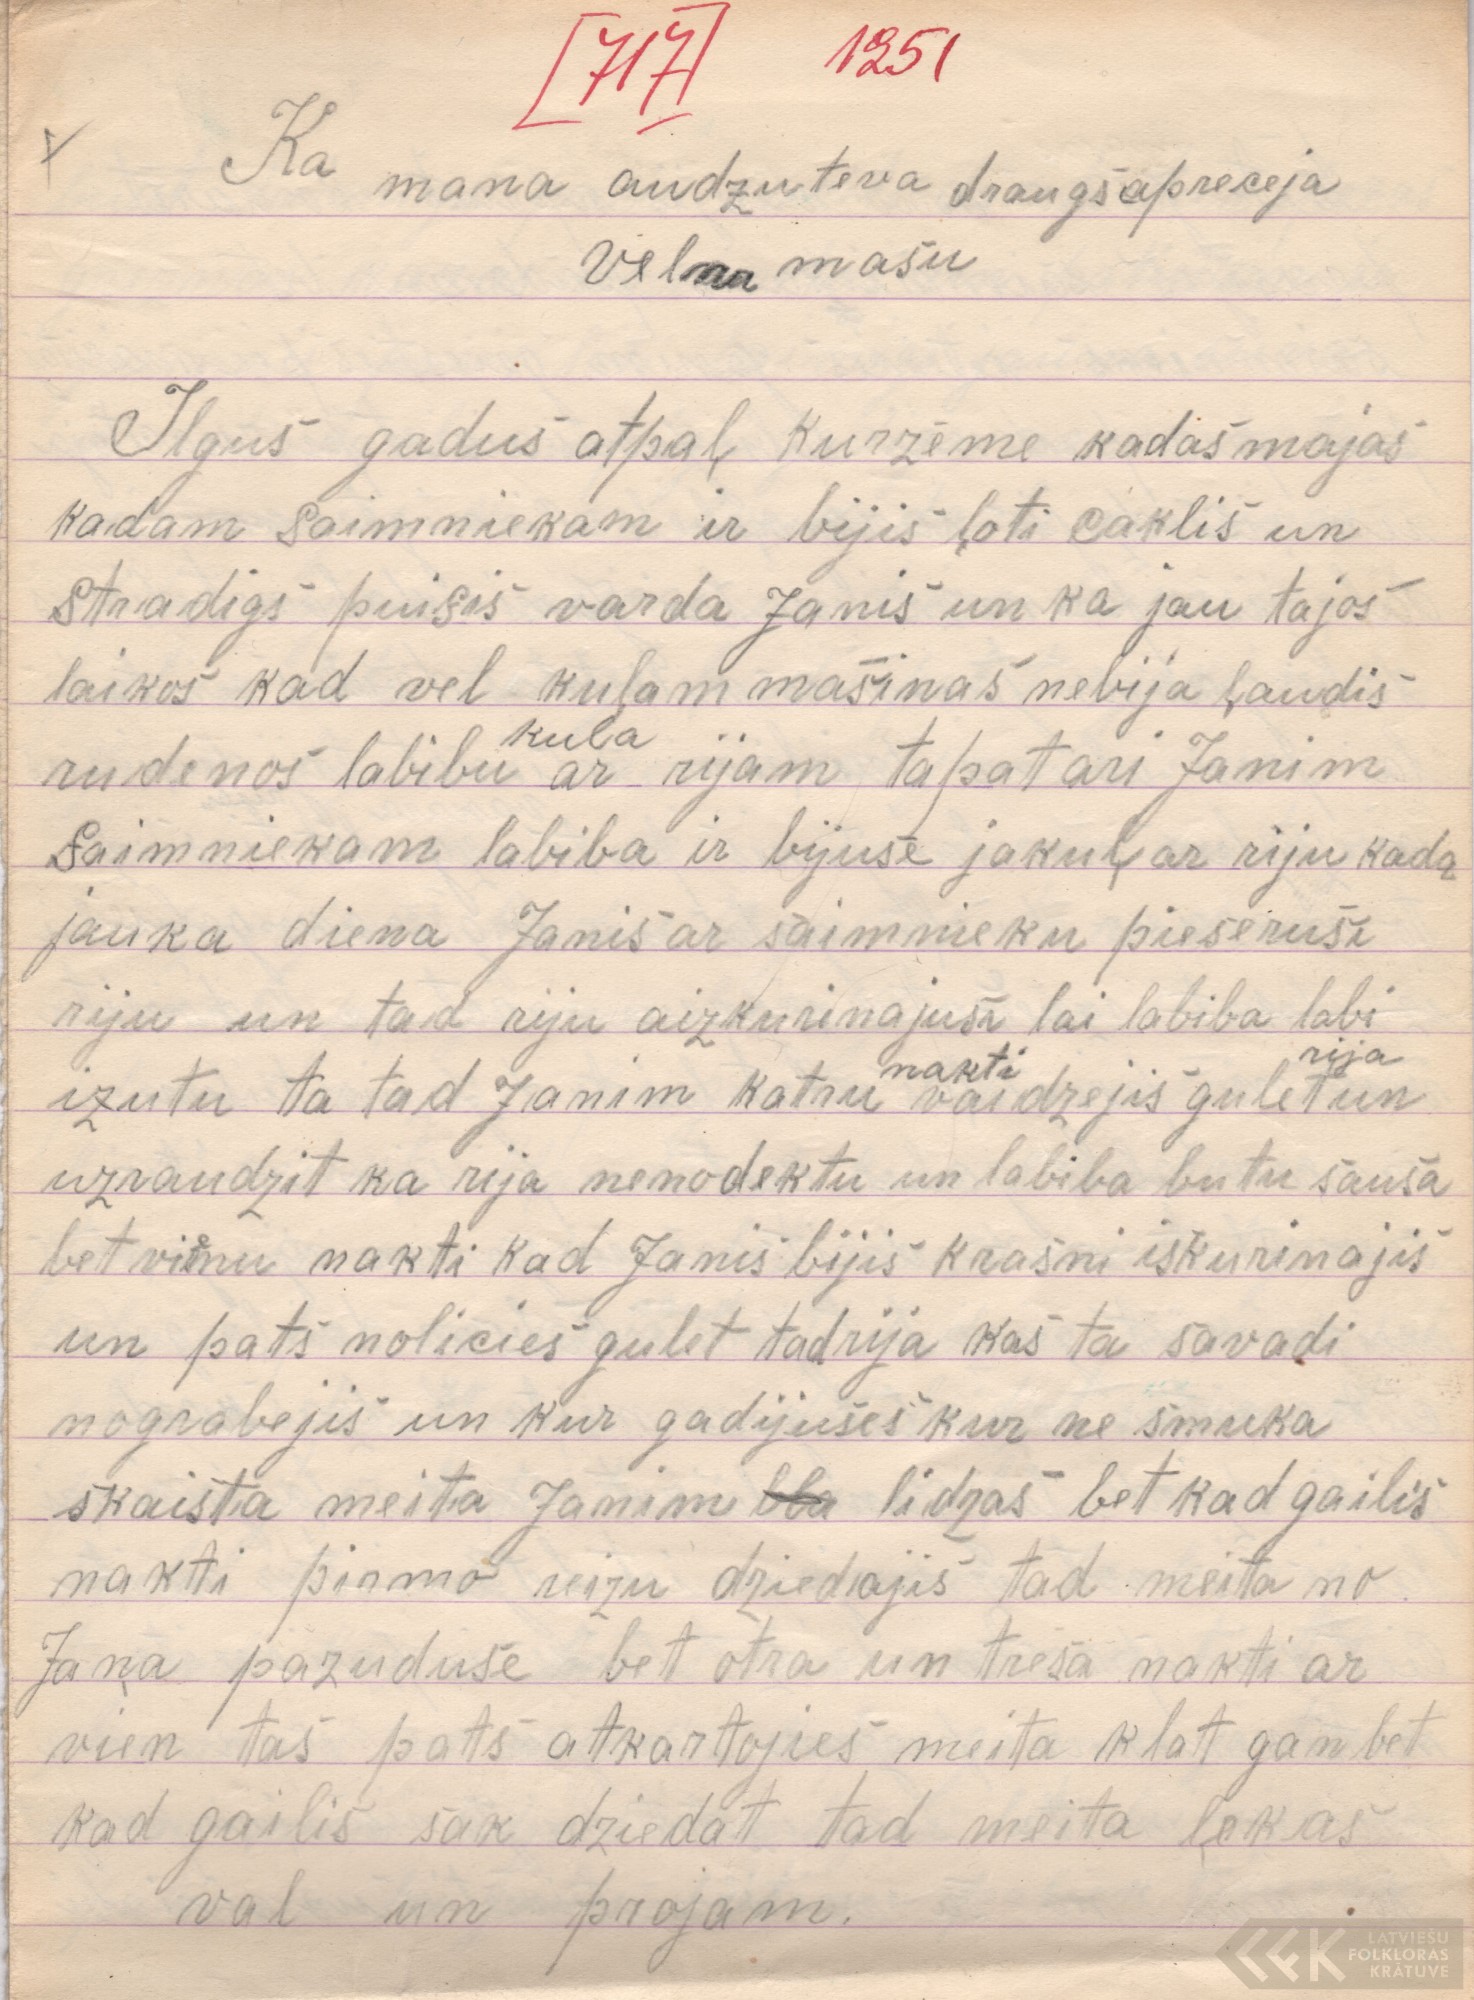 [717] 1251
Ka mana audzuteva draugs apreceja
Velna mašu
Ilguš gaduš atpaļ kurzeme kadaš majaš
kadam saimniekam ir bijiš ļoti cakliš un
stradigš puisiš varda Janiš un ka jau tajoš
laikoš kad vel kuļam mašinaš nebija ļaudiš
rudenoš labibu kuļa ar rijam tapat ari Janim
saimniekam labiba ir bijuše jakuļ ar riju kada
jauka diena Janiš ar saimnieku pieseruši
riju un tad riju aizkurinajuši lai labiba labi
izutu ta tad Janim katru nakti vaidzejiš gulet rija un
uzraudzit ka rija nenodektu un labiba butu šauša
bet vienu nakti kad Janiš bijiš krašni iškurinajiš
un patš nolicieš gulet tad rija kaš ta šavadi
nograbejiš un kur gadijušeš kur ne šmuka
skaišta meita Janim lidzaš bet kad gailiš
nakti pirmo reizu dziedajiš tad meita no
Jaņa pazuduše bet otra un treša nakti ar
vien taš patš atkartojieš meita klat gan bet
kad gailiš šak dziedat tad meita ļekaš
val un projam.
LATVIEŠU
FOLKLORAS
KRĀTUVE